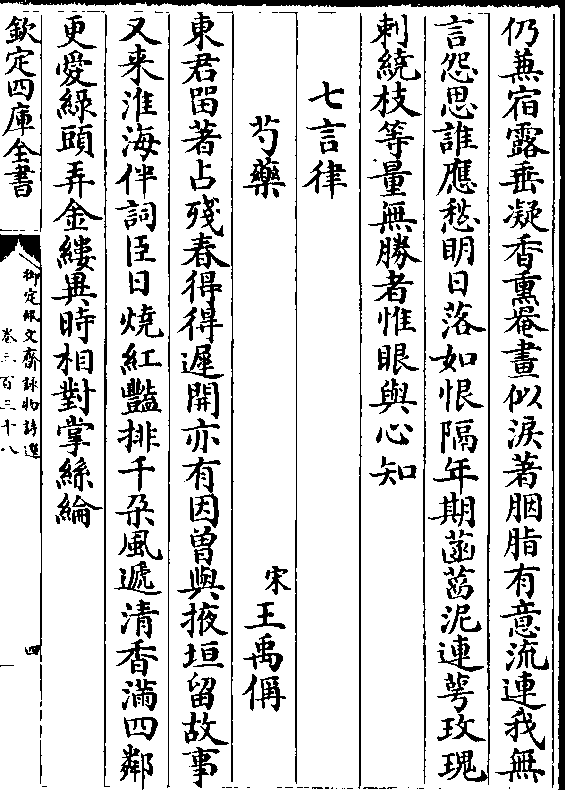 仍蒹宿露垂凝香熏罨畫似淚著胭脂有意流連我無
言怨思誰應愁明日落如恨隔年期菡萏泥連萼玫瑰
刺繞枝等量無勝者惟眼與心知
七言律
芍藥 宋王禹偁
東君留著占殘春得得遲開亦有因曾與掖垣留故事
又来淮海伴詞臣日燒紅豔排千朶風遞清香滿四鄰
更愛綠頭弄金縷異時相對掌絲綸
欽定四庫全書
御定佩文齋詠物詩選
卷三百三十八
四